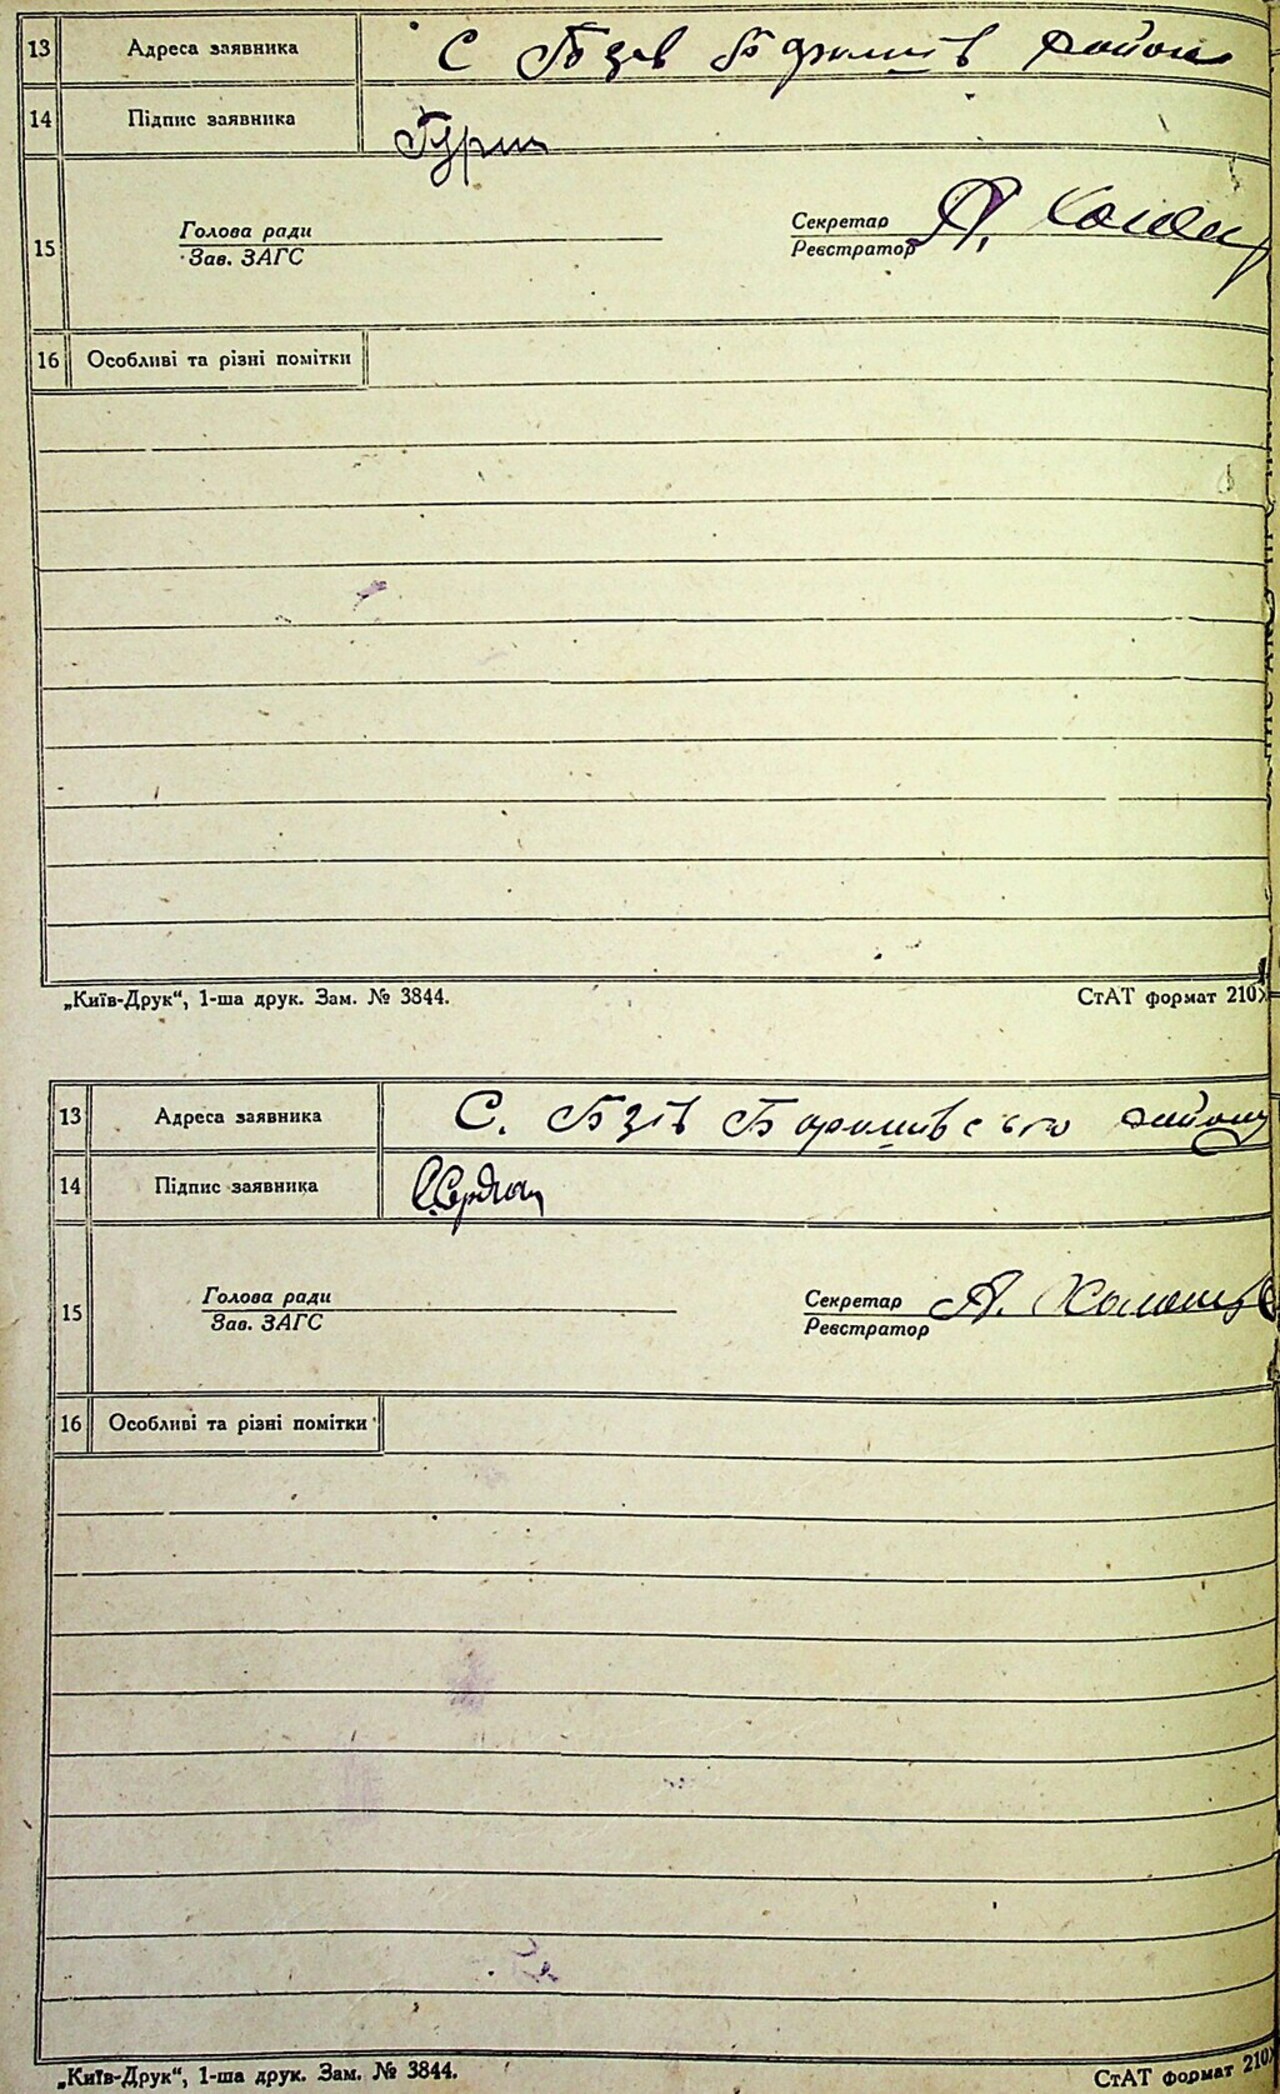 13 Адреса заявника С Бзів Баришів район
14 Підпис заявника
15 Голова ради Секретар А.
Зав. ЗАГС Реєстратор
16 Особливі та різні помітки
„Київ-Друк“, 1-ша друк. Зам. № 3844. СтАТ формат 210×
13 Адреса заявника С. Бзів Баришівського району
14 Підпис заявника
15 Голова ради Секретар А.
Зав. ЗАГС Реєстратор
16 Особливі та різні помітки
„Київ-Друк“, 1-ша друк. Зам. № 3844. СтАТ формат 210×